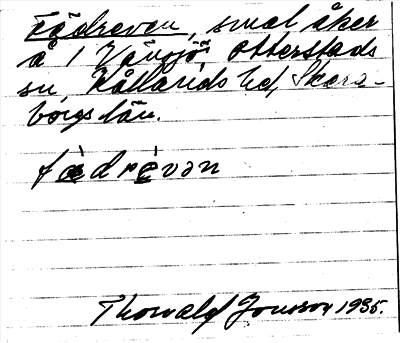 Fädreven, smal åker
å 1 Vänsjö, Otterstads
sn, Kållands hd, Skara-
borgs län.
fǽdrévən
Thorvald Jonsson 1935.